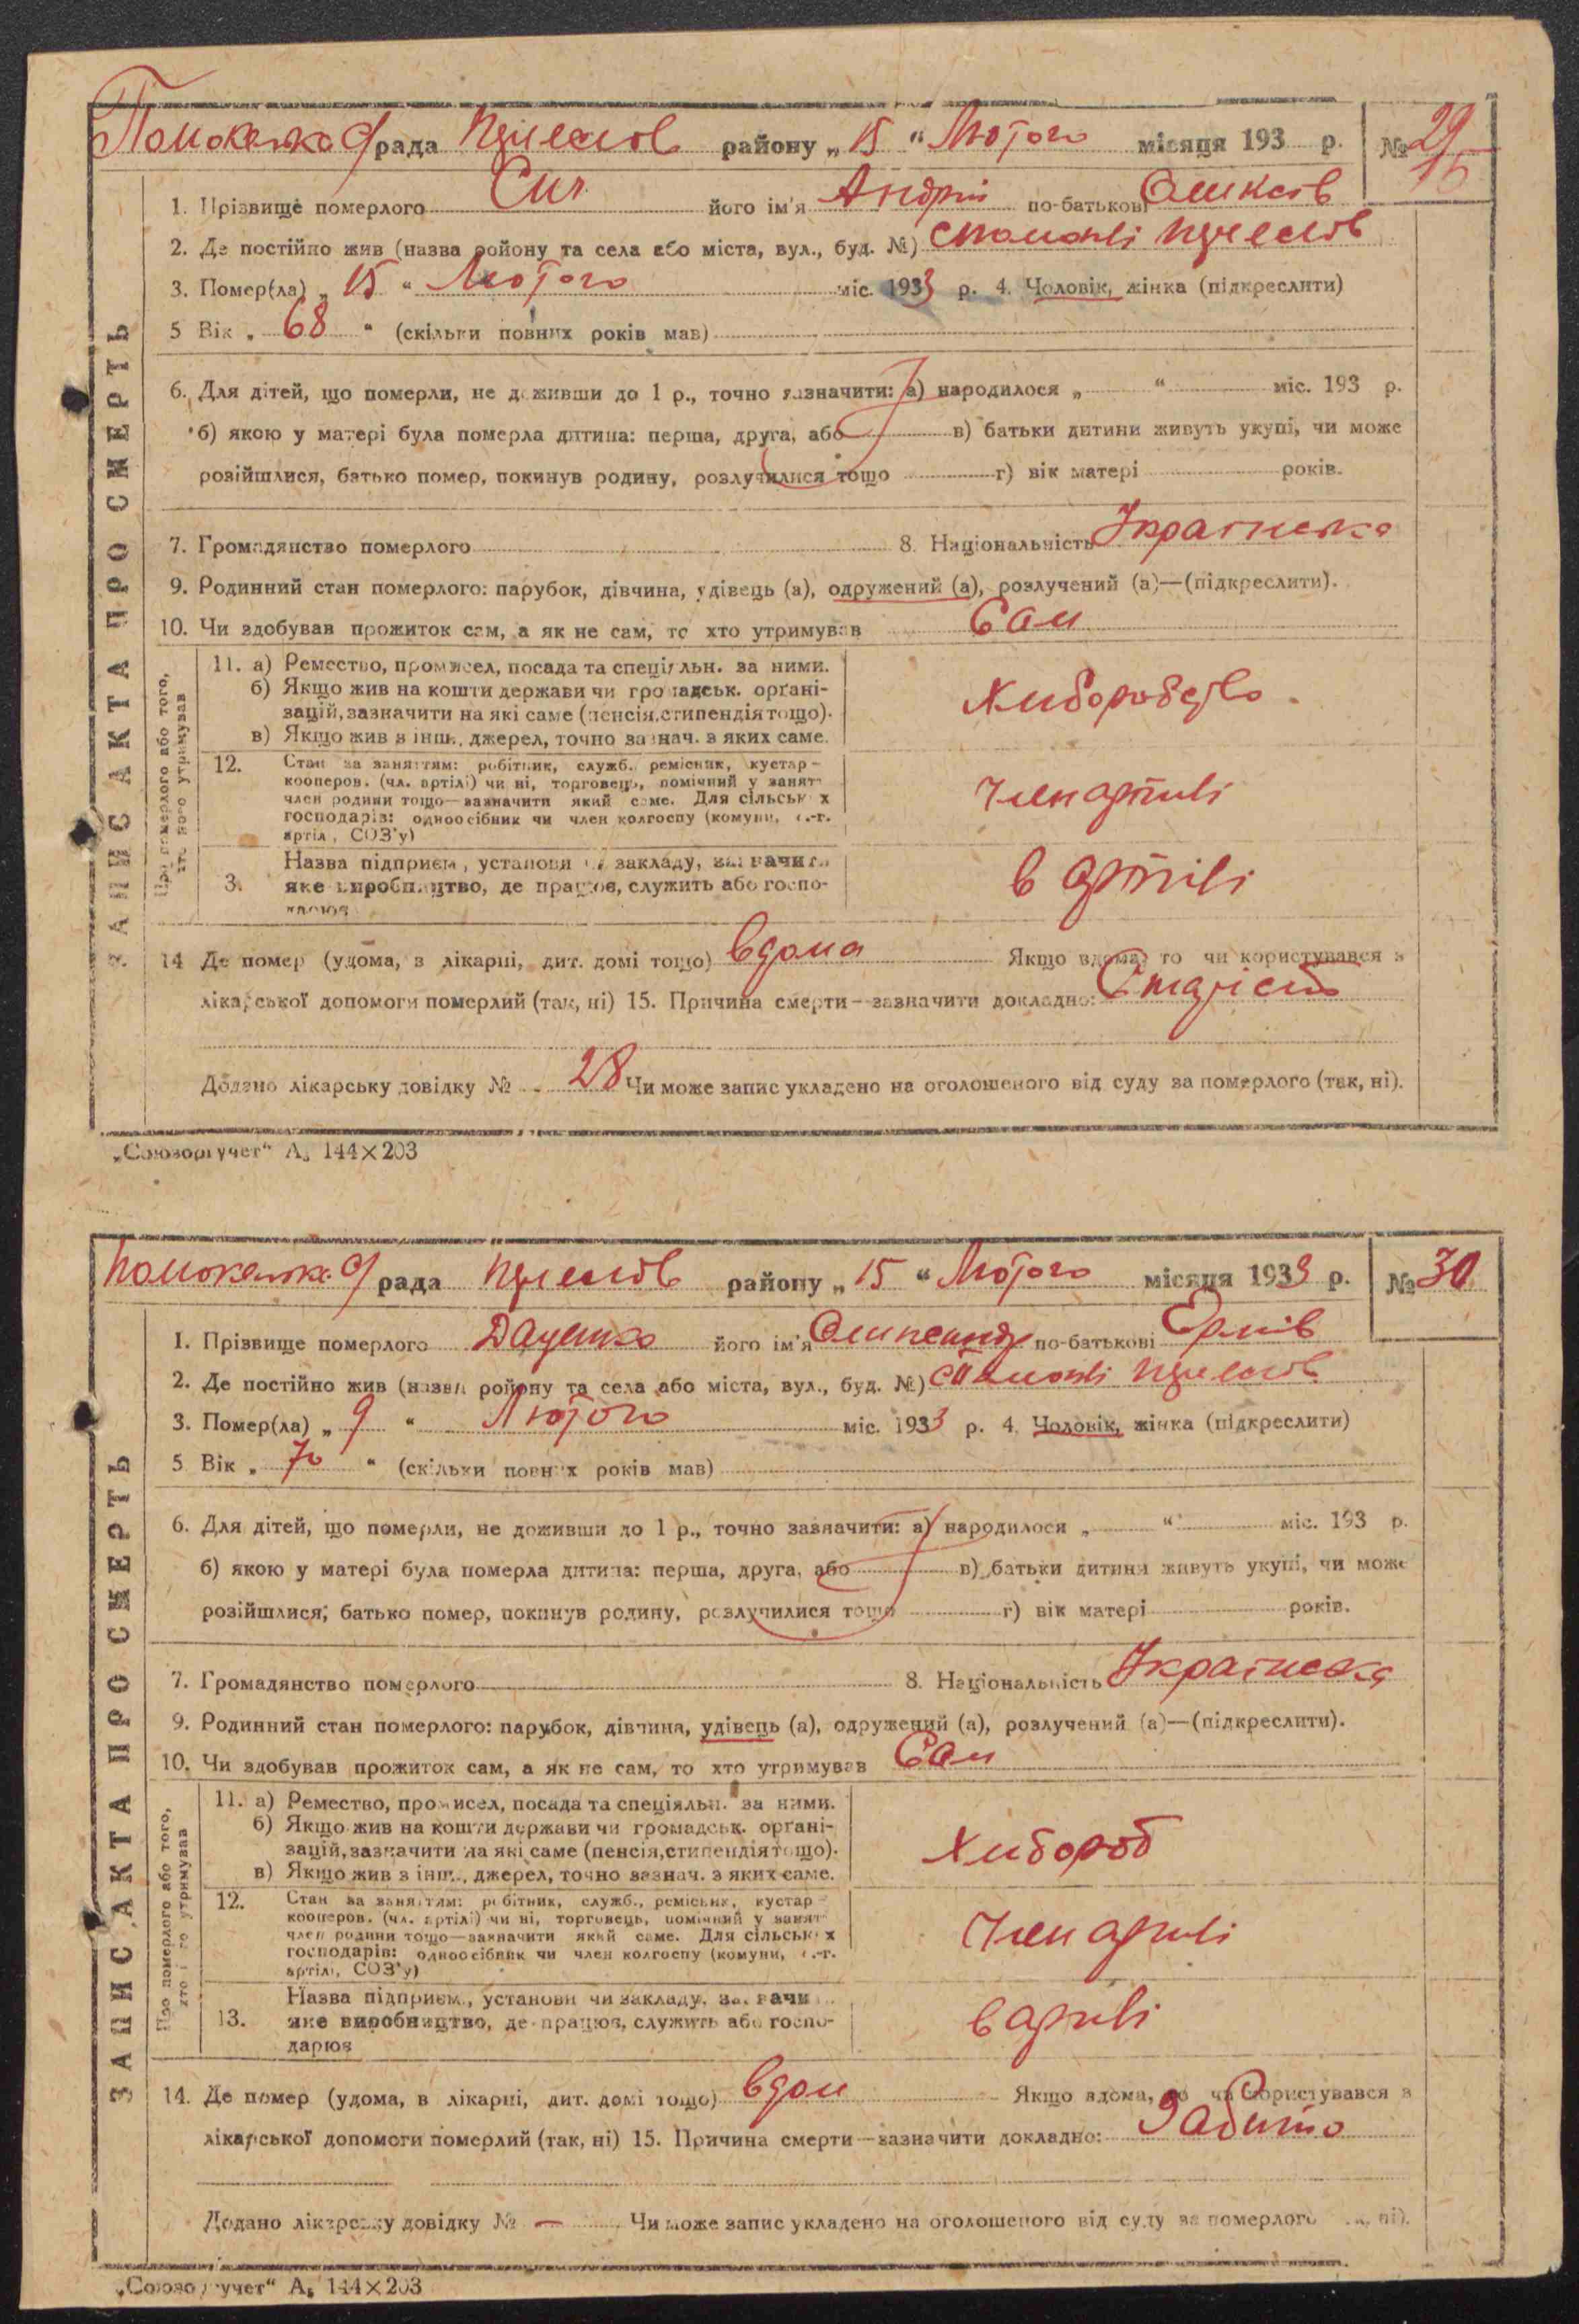 рада району „ 15 “ Лютого місяця 193 р. № 29
15
1. Прізвище померлого Сич його ім'я Андрій по-батькові
2. Де постійно жив (назва району та села або міста, вул., буд. №)
3. Помер(ла) „ 15 “ Лютого міс. 1933 р. 4. Чоловік, жінка (підкреслити)
5 Вік „ 68 “ (скільки повних років мав)
6. Для дітей, що померли, не доживши до 1 р., точно зазначити: а) народилося „ “ міс. 193 р.
б) якою у матері була померла дитина: перша, друга, або в) батьки дитини живуть укупі, чи може
розійшлися, батько помер, покинув родину, розлучилися тощо г) вік матері років.
7. Громадянство померлого 8. Національність Українська
9. Родинний стан померлого: парубок, дівчина, удівець (а), одружений (а), розлучений (а)—(підкреслити).
10. Чи здобував прожиток сам, а як не сам, то хто утримував Сам
ЗАПИС АКТА ПРО СМЕРТЬ
Про померлого або того,
хто його утримував
11. а) Ремество, промисел, посада та спеціяльн. за ними.
б) Якщо жив на кошти держави чи громадськ. орґані-
зацій, зазначити на які саме (пенсія, стипендія тощо).
в) Якщо жив з інш., джерел, точно зазнач. з яких саме.
Хліборобство
12. Стан за заняттям: робітник, служб., ремісник, кустар-
кооперов. (чл. артілі) чи ні, торговець, помічний у занят
член родини тощо—зазначити який саме. Для сільських
господарів: одноосібник чи член колгоспу (комуни, с.-г.
артілі, СОЗ'у)
Член артілі
3. Назва підприєм., установи чи закладу, зазначити
яке виробництво, де працює, служить або госпо-
дарює
в артілі
14 Де помер (удома, в лікарні, дит. домі тощо) вдома Якщо вдома, то чи користувався з
лікарської допомоги померлий (так, ні) 15. Причина смерти—зазначити докладно: Старість
Додано лікарську довідку № 28 Чи може запис укладено на оголошеного від суду за померлого (так, ні).
„Союзоргучет“ А₅ 144×203
рада району „ 15 “ Лютого місяця 1933 р. № 30
1. Прізвище померлого Даценко його ім'я по-батькові
2. Де постійно жив (назва району та села або міста, вул., буд. №)
3. Помер(ла) „ 9 “ Лютого міс. 1933 р. 4. Чоловік, жінка (підкреслити)
5 Вік „ 70 “ (скільки повних років мав)
6. Для дітей, що померли, не доживши до 1 р., точно зазначити: а) народилося „ “ міс. 193 р.
б) якою у матері була померла дитина: перша, друга, або в) батьки дитини живуть укупі, чи може
розійшлися, батько помер, покинув родину, розлучилися тощо г) вік матері років.
7. Громадянство померлого 8. Національність Українська
9. Родинний стан померлого: парубок, дівчина, удівець (а), одружений (а), розлучений (а)—(підкреслити).
10. Чи здобував прожиток сам, а як не сам, то хто утримував Сам
ЗАПИС АКТА ПРО СМЕРТЬ
Про померлого або того,
хто його утримував
11. а) Ремество, промисел, посада та спеціяльн. за ними.
б) Якщо жив на кошти держави чи громадськ. орґані-
зацій, зазначити на які саме (пенсія, стипендія тощо).
в) Якщо жив з інш., джерел, точно зазнач. з яких саме.
Хлібороб
12. Стан за заняттям: робітник, служб., ремісник, кустар-
кооперов. (чл. артілі) чи ні, торговець, помічний у занят
член родини тощо—зазначити який саме. Для сільських
господарів: одноосібник чи член колгоспу (комуни, с.-г.
артілі, СОЗ'у)
Член артілі
13. Назва підприєм., установи чи закладу, зазначи
яке виробництво, де працює, служить або госпо-
дарює
в артілі
14. Де помер (удома, в лікарні, дит. домі тощо) вдом Якщо вдома, то чи користувався з
лікарської допомоги померлий (так, ні) 15. Причина смерти—зазначити докладно:
Додано лікарську довідку № — Чи може запис укладено на оголошеного від суду за померлого ні).
„Союзоргучет“ А₅ 144×203